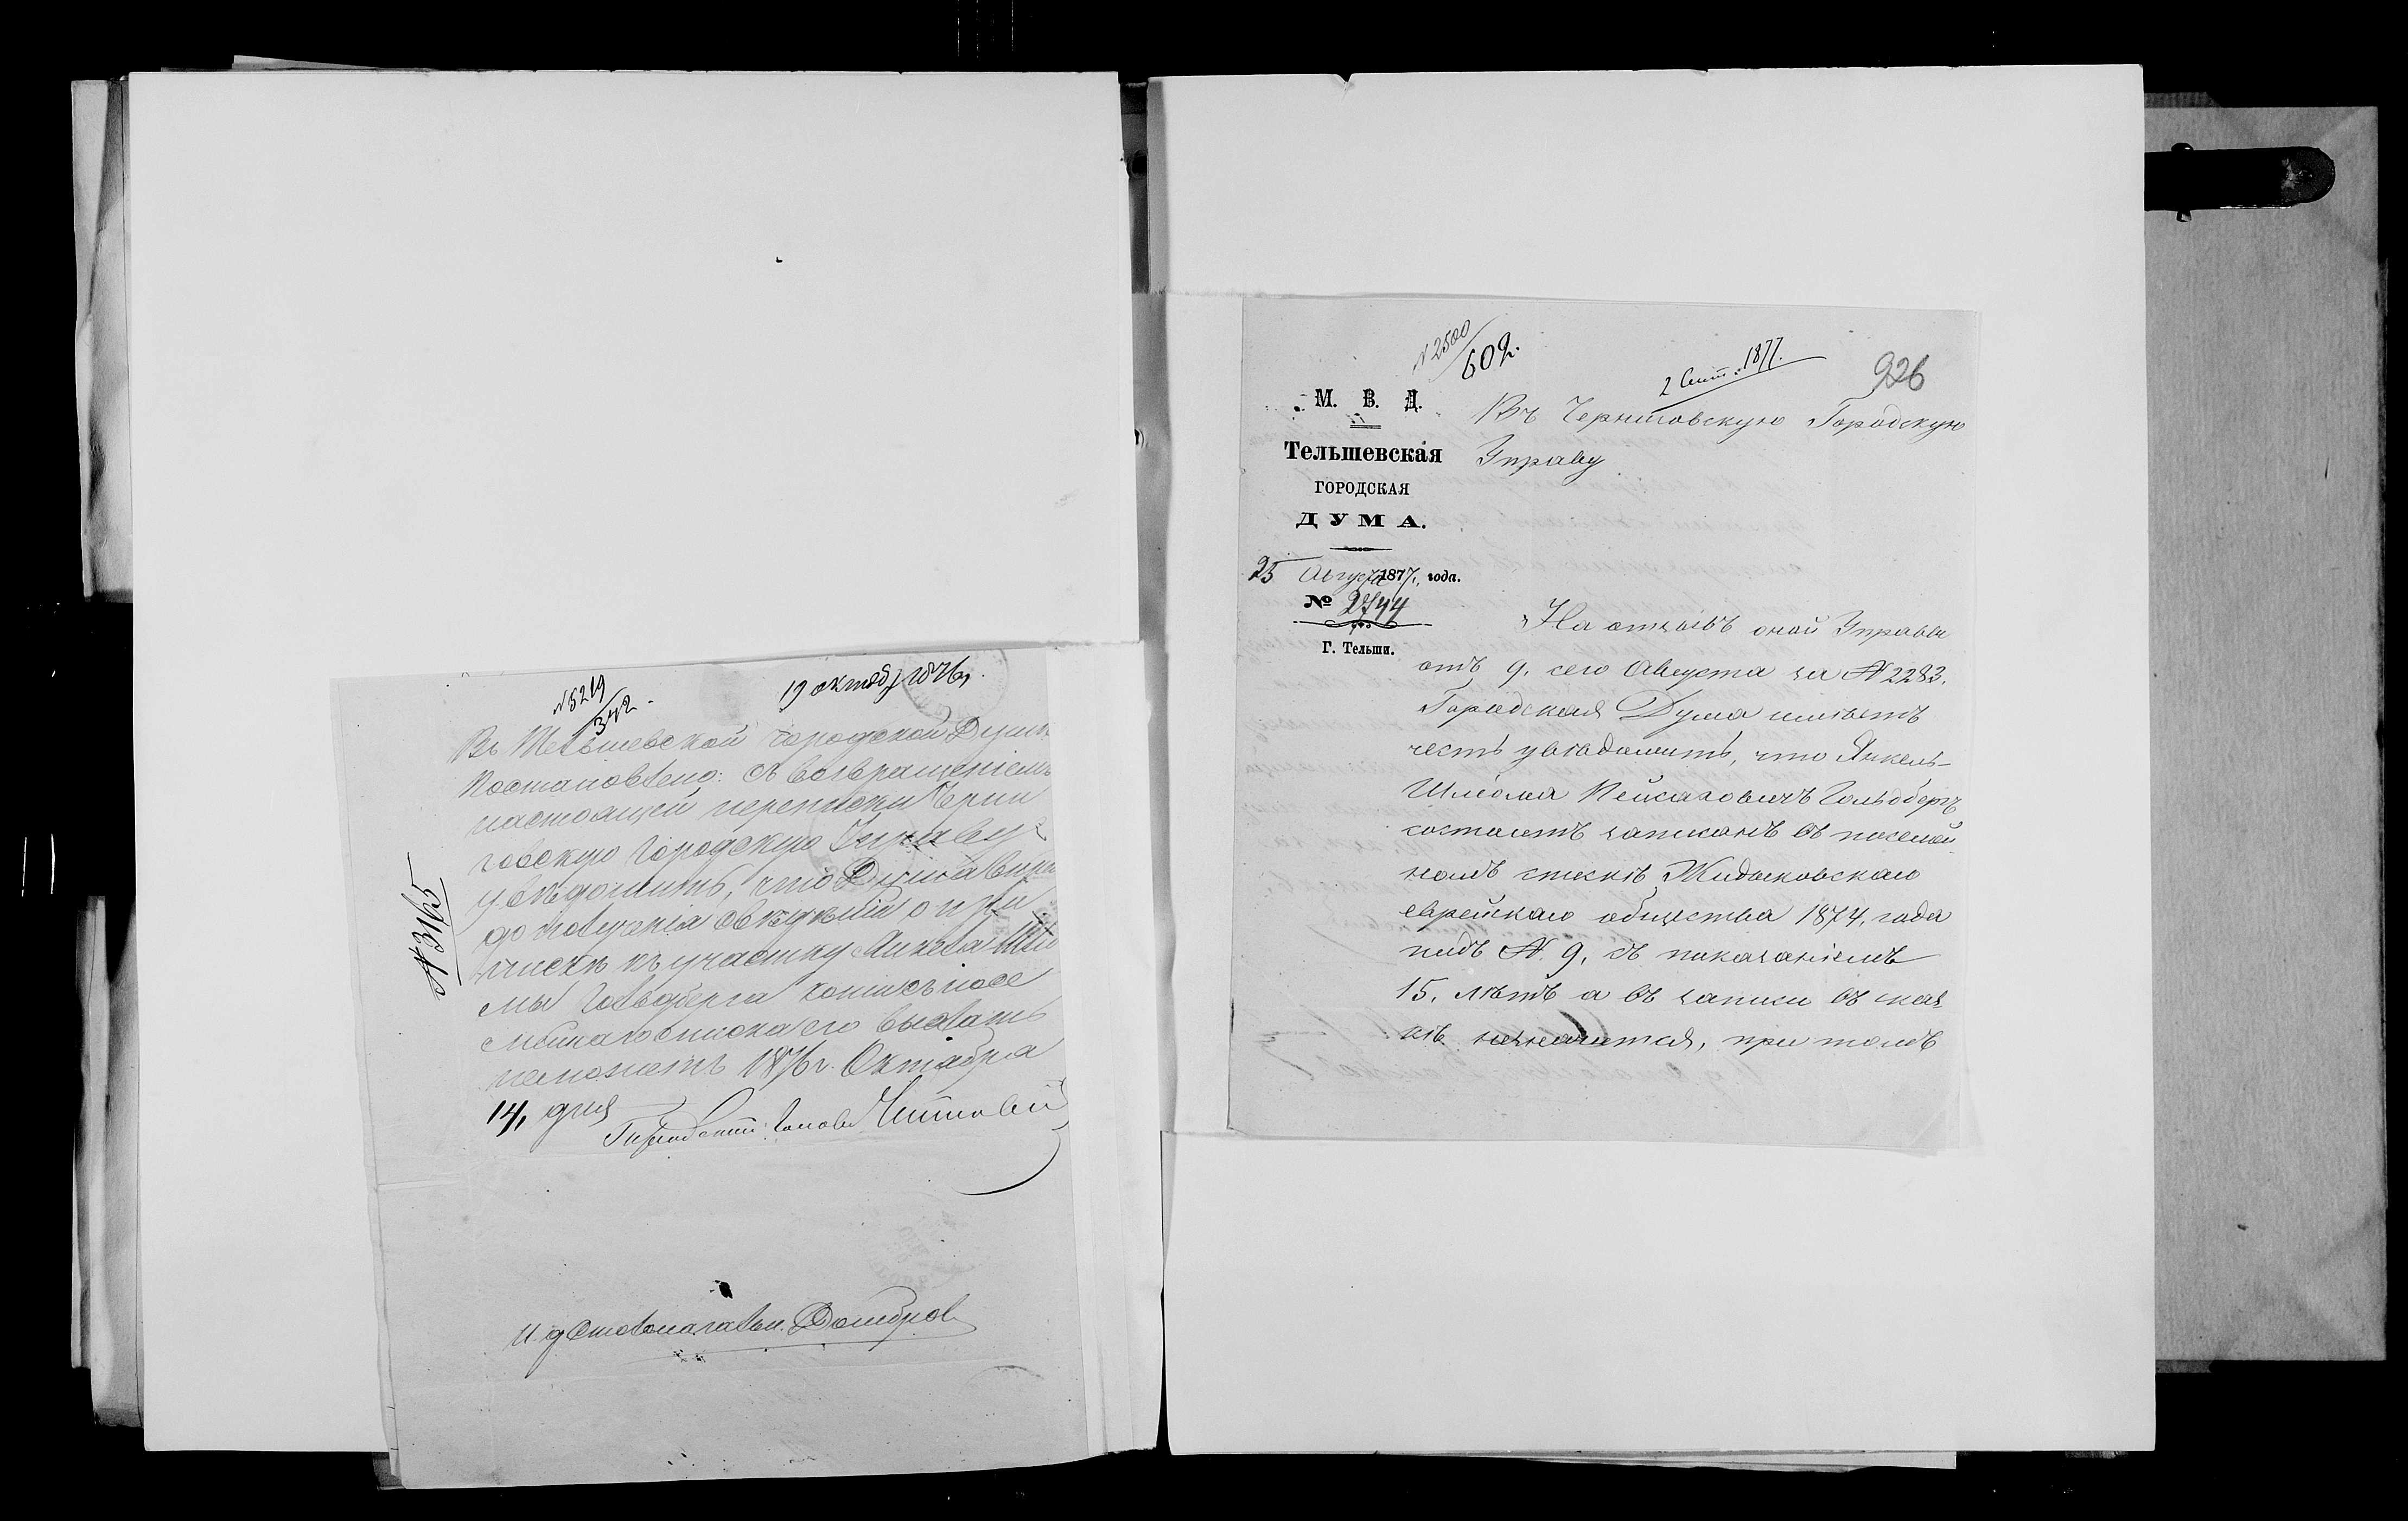 № 5219
342.
19 октяб 1876,
Въ Тельшевской Городской Думѣ
Постановлено: съ возвращеніемъ
настоящей переписки Черни
говскую Городскую Управу
увѣдомить, что Дума впредь
до полученія свѣдѣній о при
пискѣ къ участку Янкеля Шлио
мы Гольдберга копіи съ посе
мейнаго списка его выслать
неможетъ 1876 г. Октября
14, дня
Городской Голова
№ 3165
И. д Столоначальн. Домбров
№ 2500
609.
2 Сент. 1877.
926
М. В. Д.
Тельшевская
ГОРОДСКАЯ
ДУМА.
25 Августа 1877, года.
№ 2744
Г. Тельши.
Въ Черниговскую Городскую
Управу
На отзывъ оной Управы
отъ 9, сего Августа за № 2283.
Городская Дума имѣетъ
честь увѣдомить, что Янкель-
Шліома Пейсаховичъ Гольдбергъ
состоитъ записанъ въ посемей-
номъ спискѣ Жидыковскаго
еврейскаго общества 1874, года
подъ №. 9, съ показаніемъ
15, лѣтъ а въ записи въ сказ
кѣ незначится, при томъ